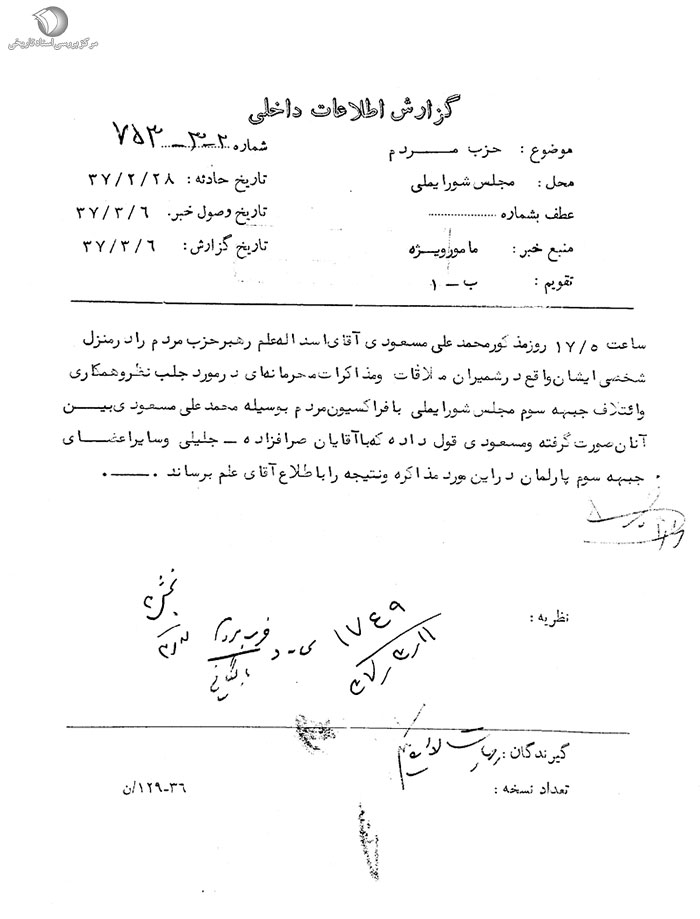 مرکز بررسی اسناد تاریخی
گزارش اطلاعات داخلی
موضوع : حزب مردم
شماره ۲-۳-۷۵۳
محل : مجلس شورایملی
تاریخ حادثه : ۳۷/۲/۲۸
عطف بشماره ..................
تاریخ وصول خبر. ۳۷/۳/۶
منبع خبر : مامورویژه
تاریخ گزارش : ۳۷/۳/۶
تقویم : ب - ۱
ساعت ۱۷/۵ روزمذکورمحمدعلی مسعودی آقای اسداله علم رهبرحزب مردم رادرمنزل
شخصی ایشان واقع درشمیران ملاقات ومذاکرات محرمانه‌ای درمورد جلب نظروهمکاری
وائتلاف جبهه سوم مجلس شورایملی بافراکسیون مردم بوسیله محمدعلی مسعودی بین
آنان صورت گرفته ومسعودی قول داده که باآقایان صرافزاده - جلیلی وسایراعضای
جبهه سوم پارلمان دراین مورد مذاکره ونتیجه راباطلاع آقای علم برساند .ــــ.
نظریه :
بخش ۳
۱۷۴۹
۳۷/۳/۱۱
بایگانی
گیرندگان :
تعداد نسخه :
۳۶-۱۲۹/ن